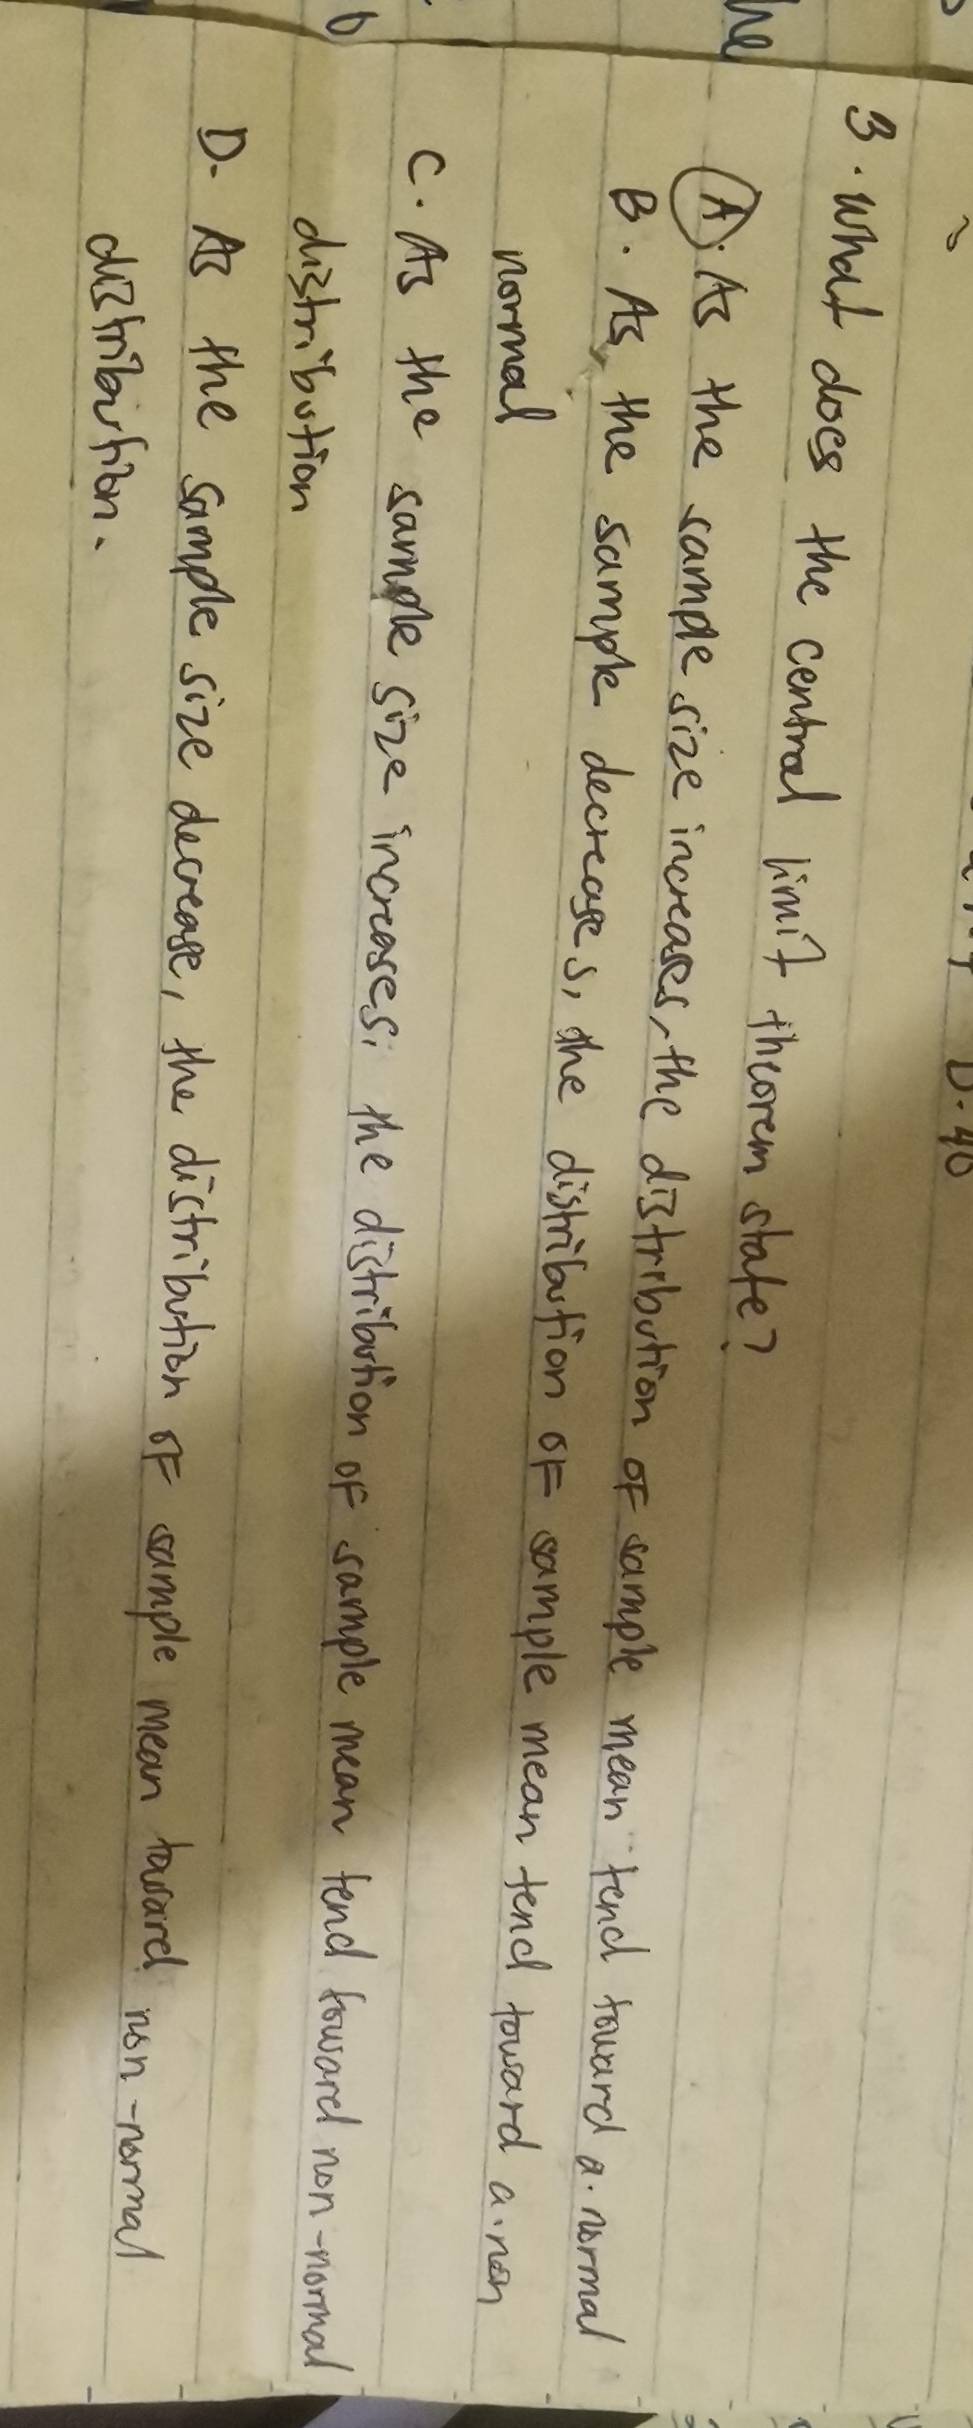 he
D. 40
3. What does the central limit theorem state?
A. As the sample size increases, the distribution of sample mean tend toward a normal
B. As, the sample decreases, the distribution of sample mean tend toward a non
normal
C. As the sample size increases, the distribution of sample mean tend toward non-normal
distribution
D. As the sample size decrease, the distribution of sample mean toward non-normal
distribution.